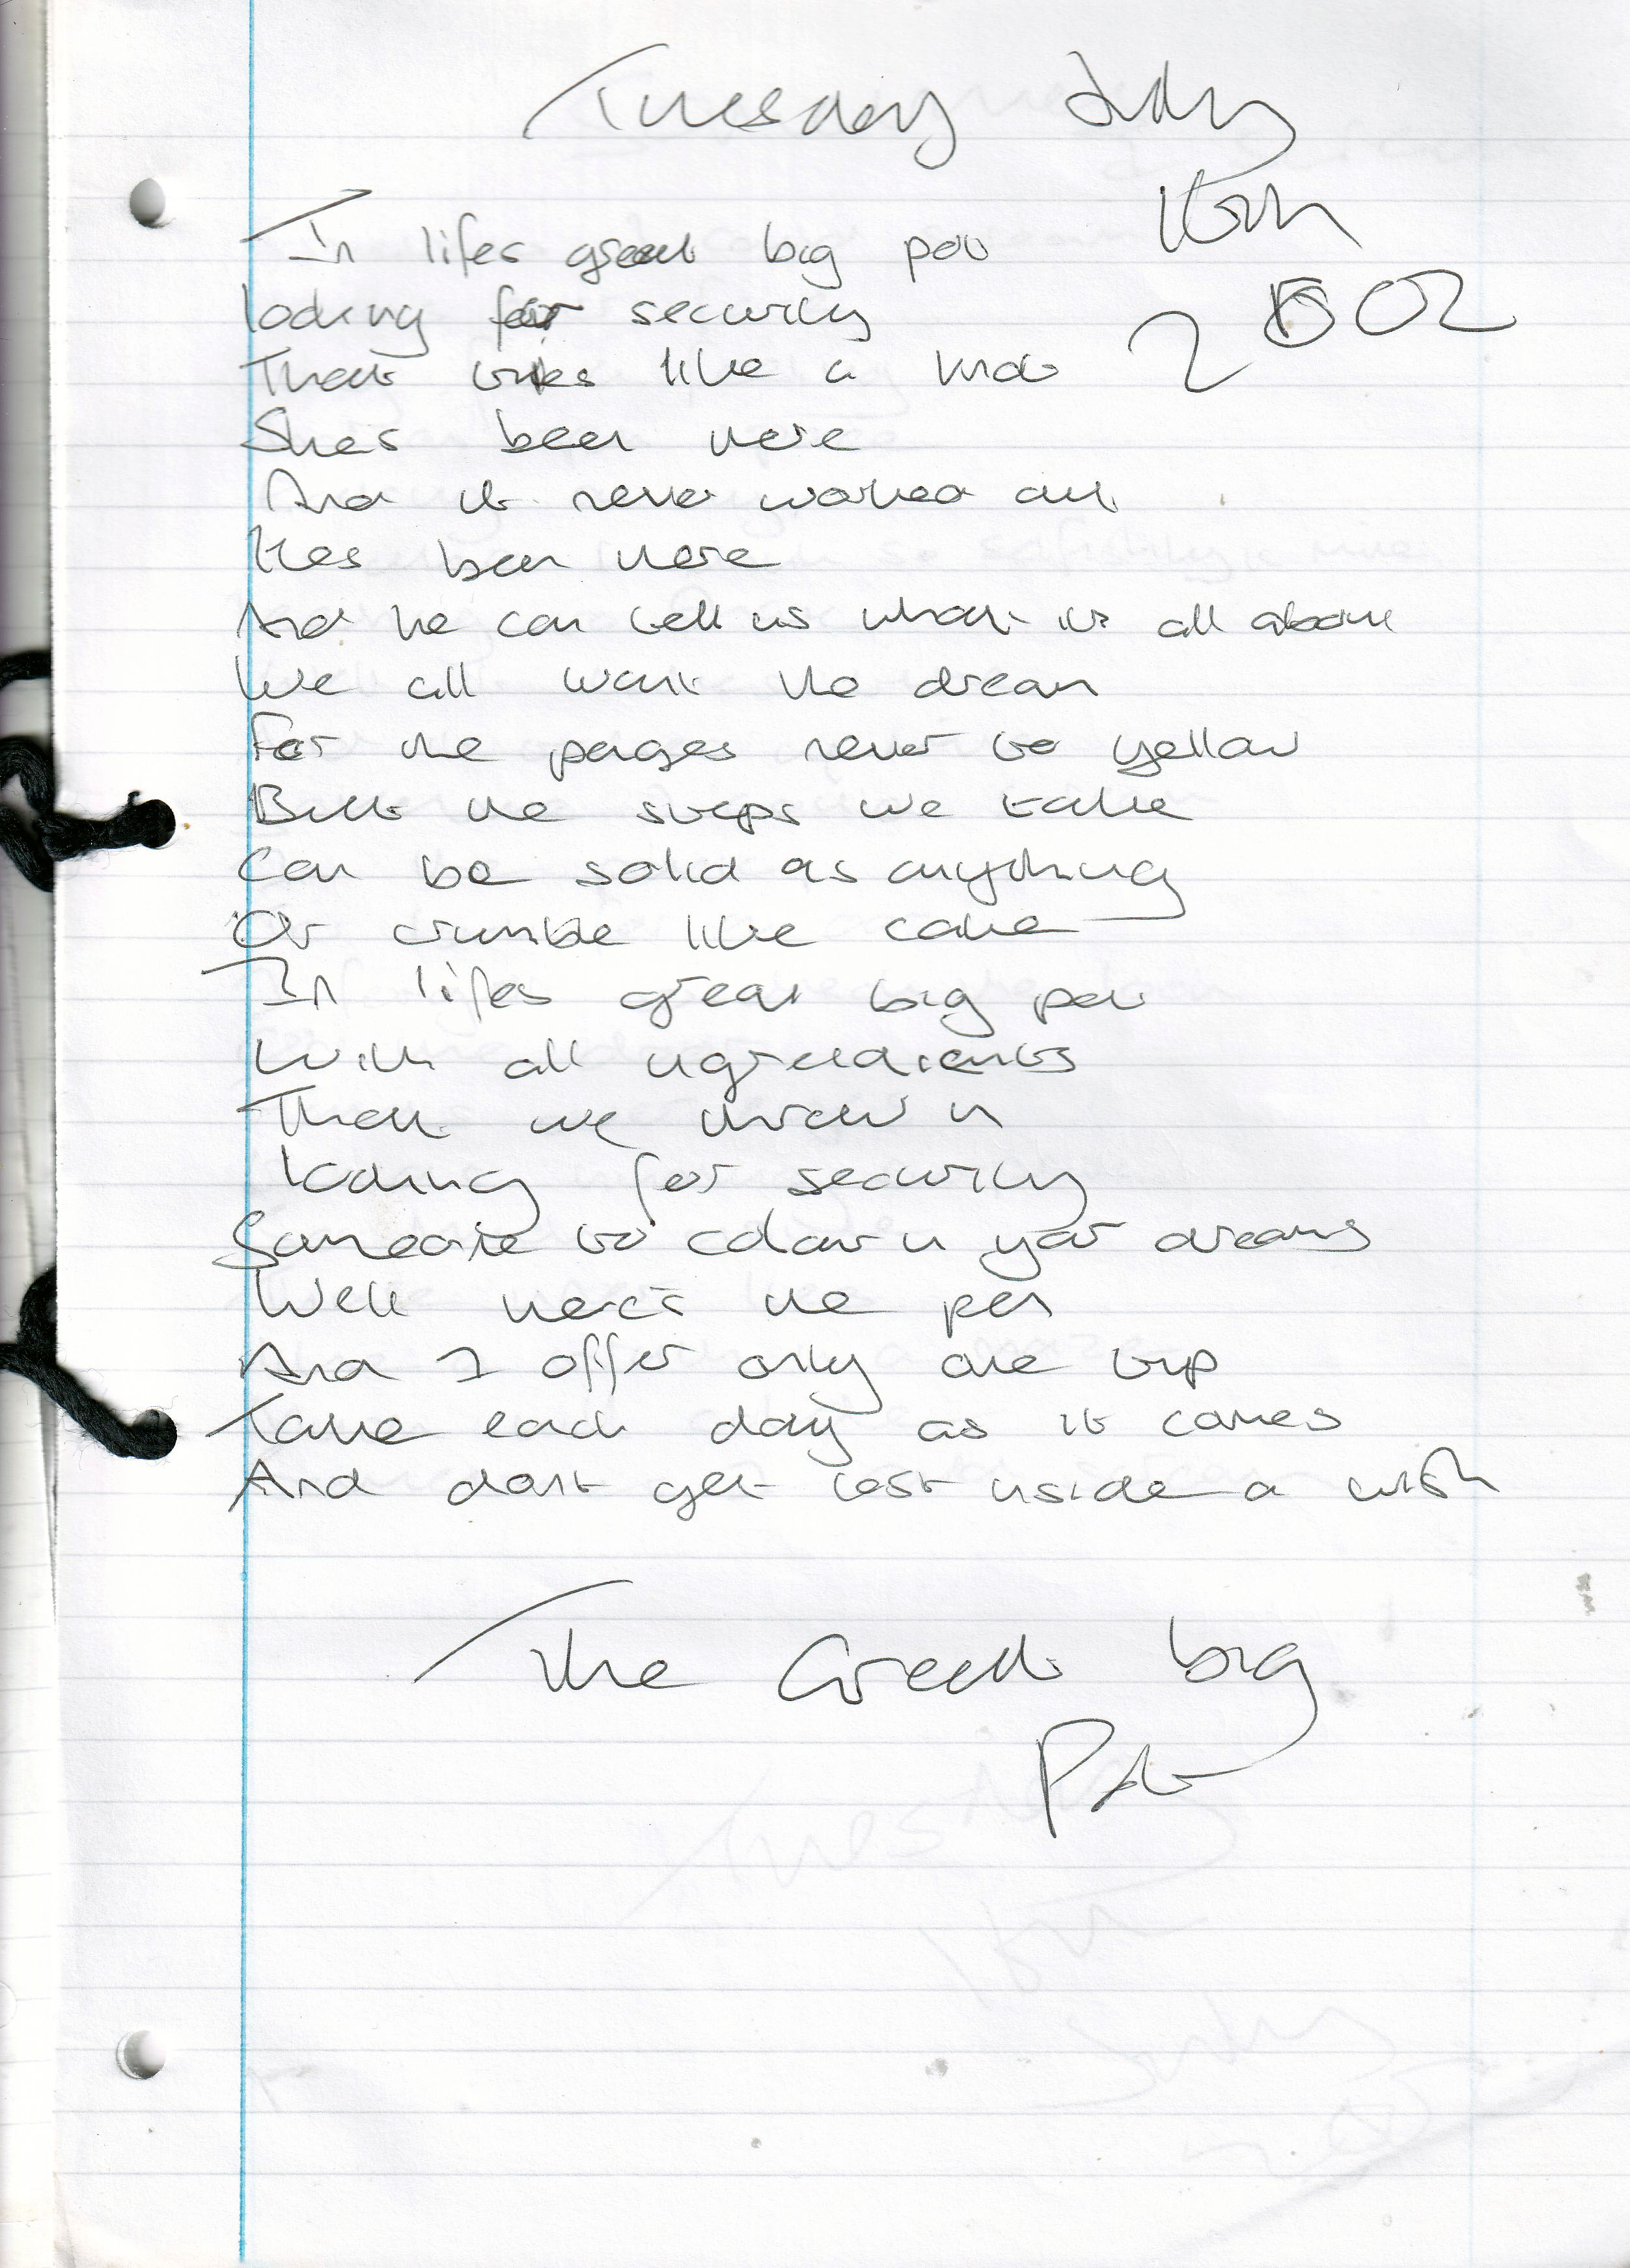 Tuesday July
16th
2002
In lifes great big pot
looking for security
That ties like a knot
Shes been here
And it never worked out
Hes been here
And he can tell us what its all about
We all want the dream
For the pages never to yellow
But the steps we take
Can be solid as anything
Or crumble like cake
In lifes great big pot
With all ingredients
That we throw in
looking for security
Someone to colour in your dreams
Well here's the pen
And I offer only one tip
Take each day as it comes
And dont get lost inside a wish
The Great big
Pot